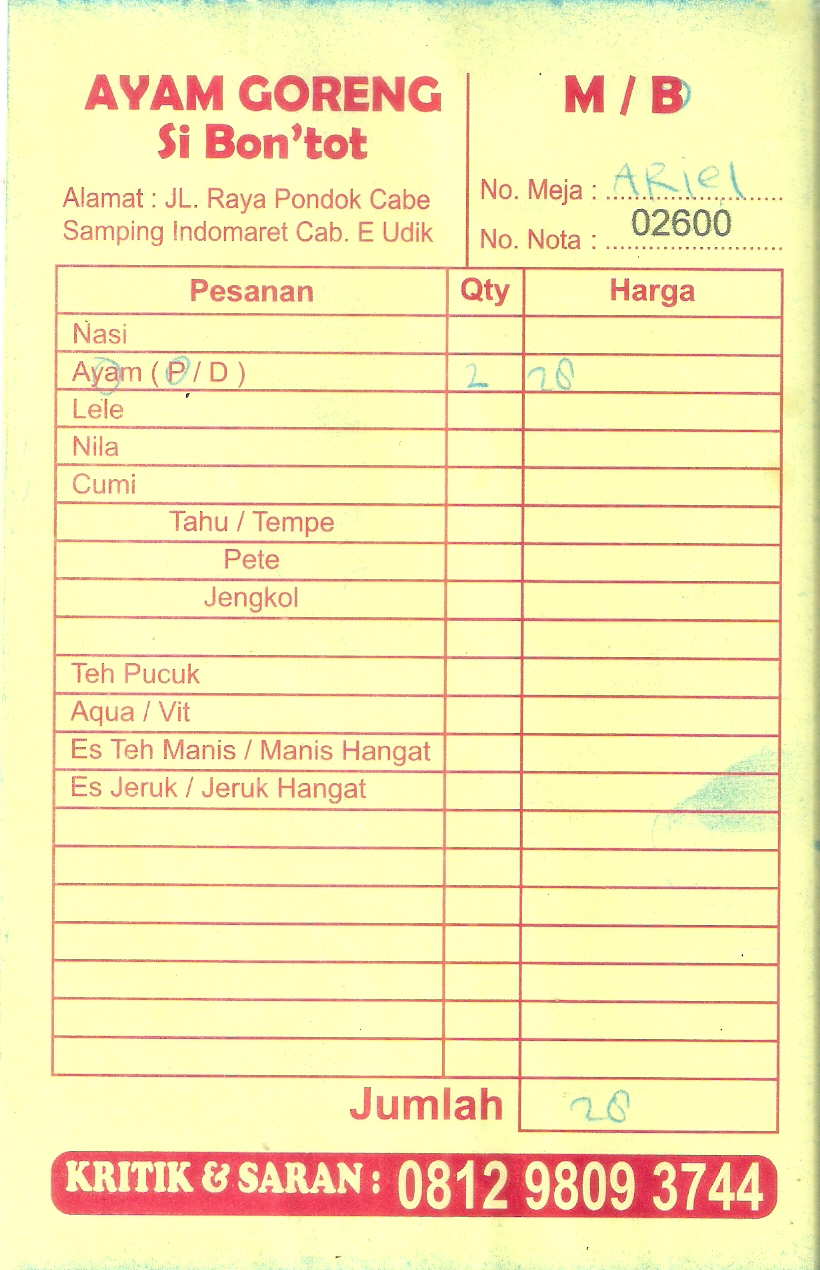 AYAM GORENG
Si Bon'tot
Alamat : JL. Raya Pondok Cabe
Samping Indomaret Cab. E Udik
M / B
No. Meja : ARiel
No. Nota : 02600
Pesanan Qty Harga
Nasi
Ayam ( P / D ) 2 28
Lele
Nila
Cumi
Tahu / Tempe
Pete
Jengkol
Teh Pucuk
Aqua / Vit
Es Teh Manis / Manis Hangat
Es Jeruk / Jeruk Hangat
Jumlah 28
KRITIK & SARAN : 0812 9809 3744